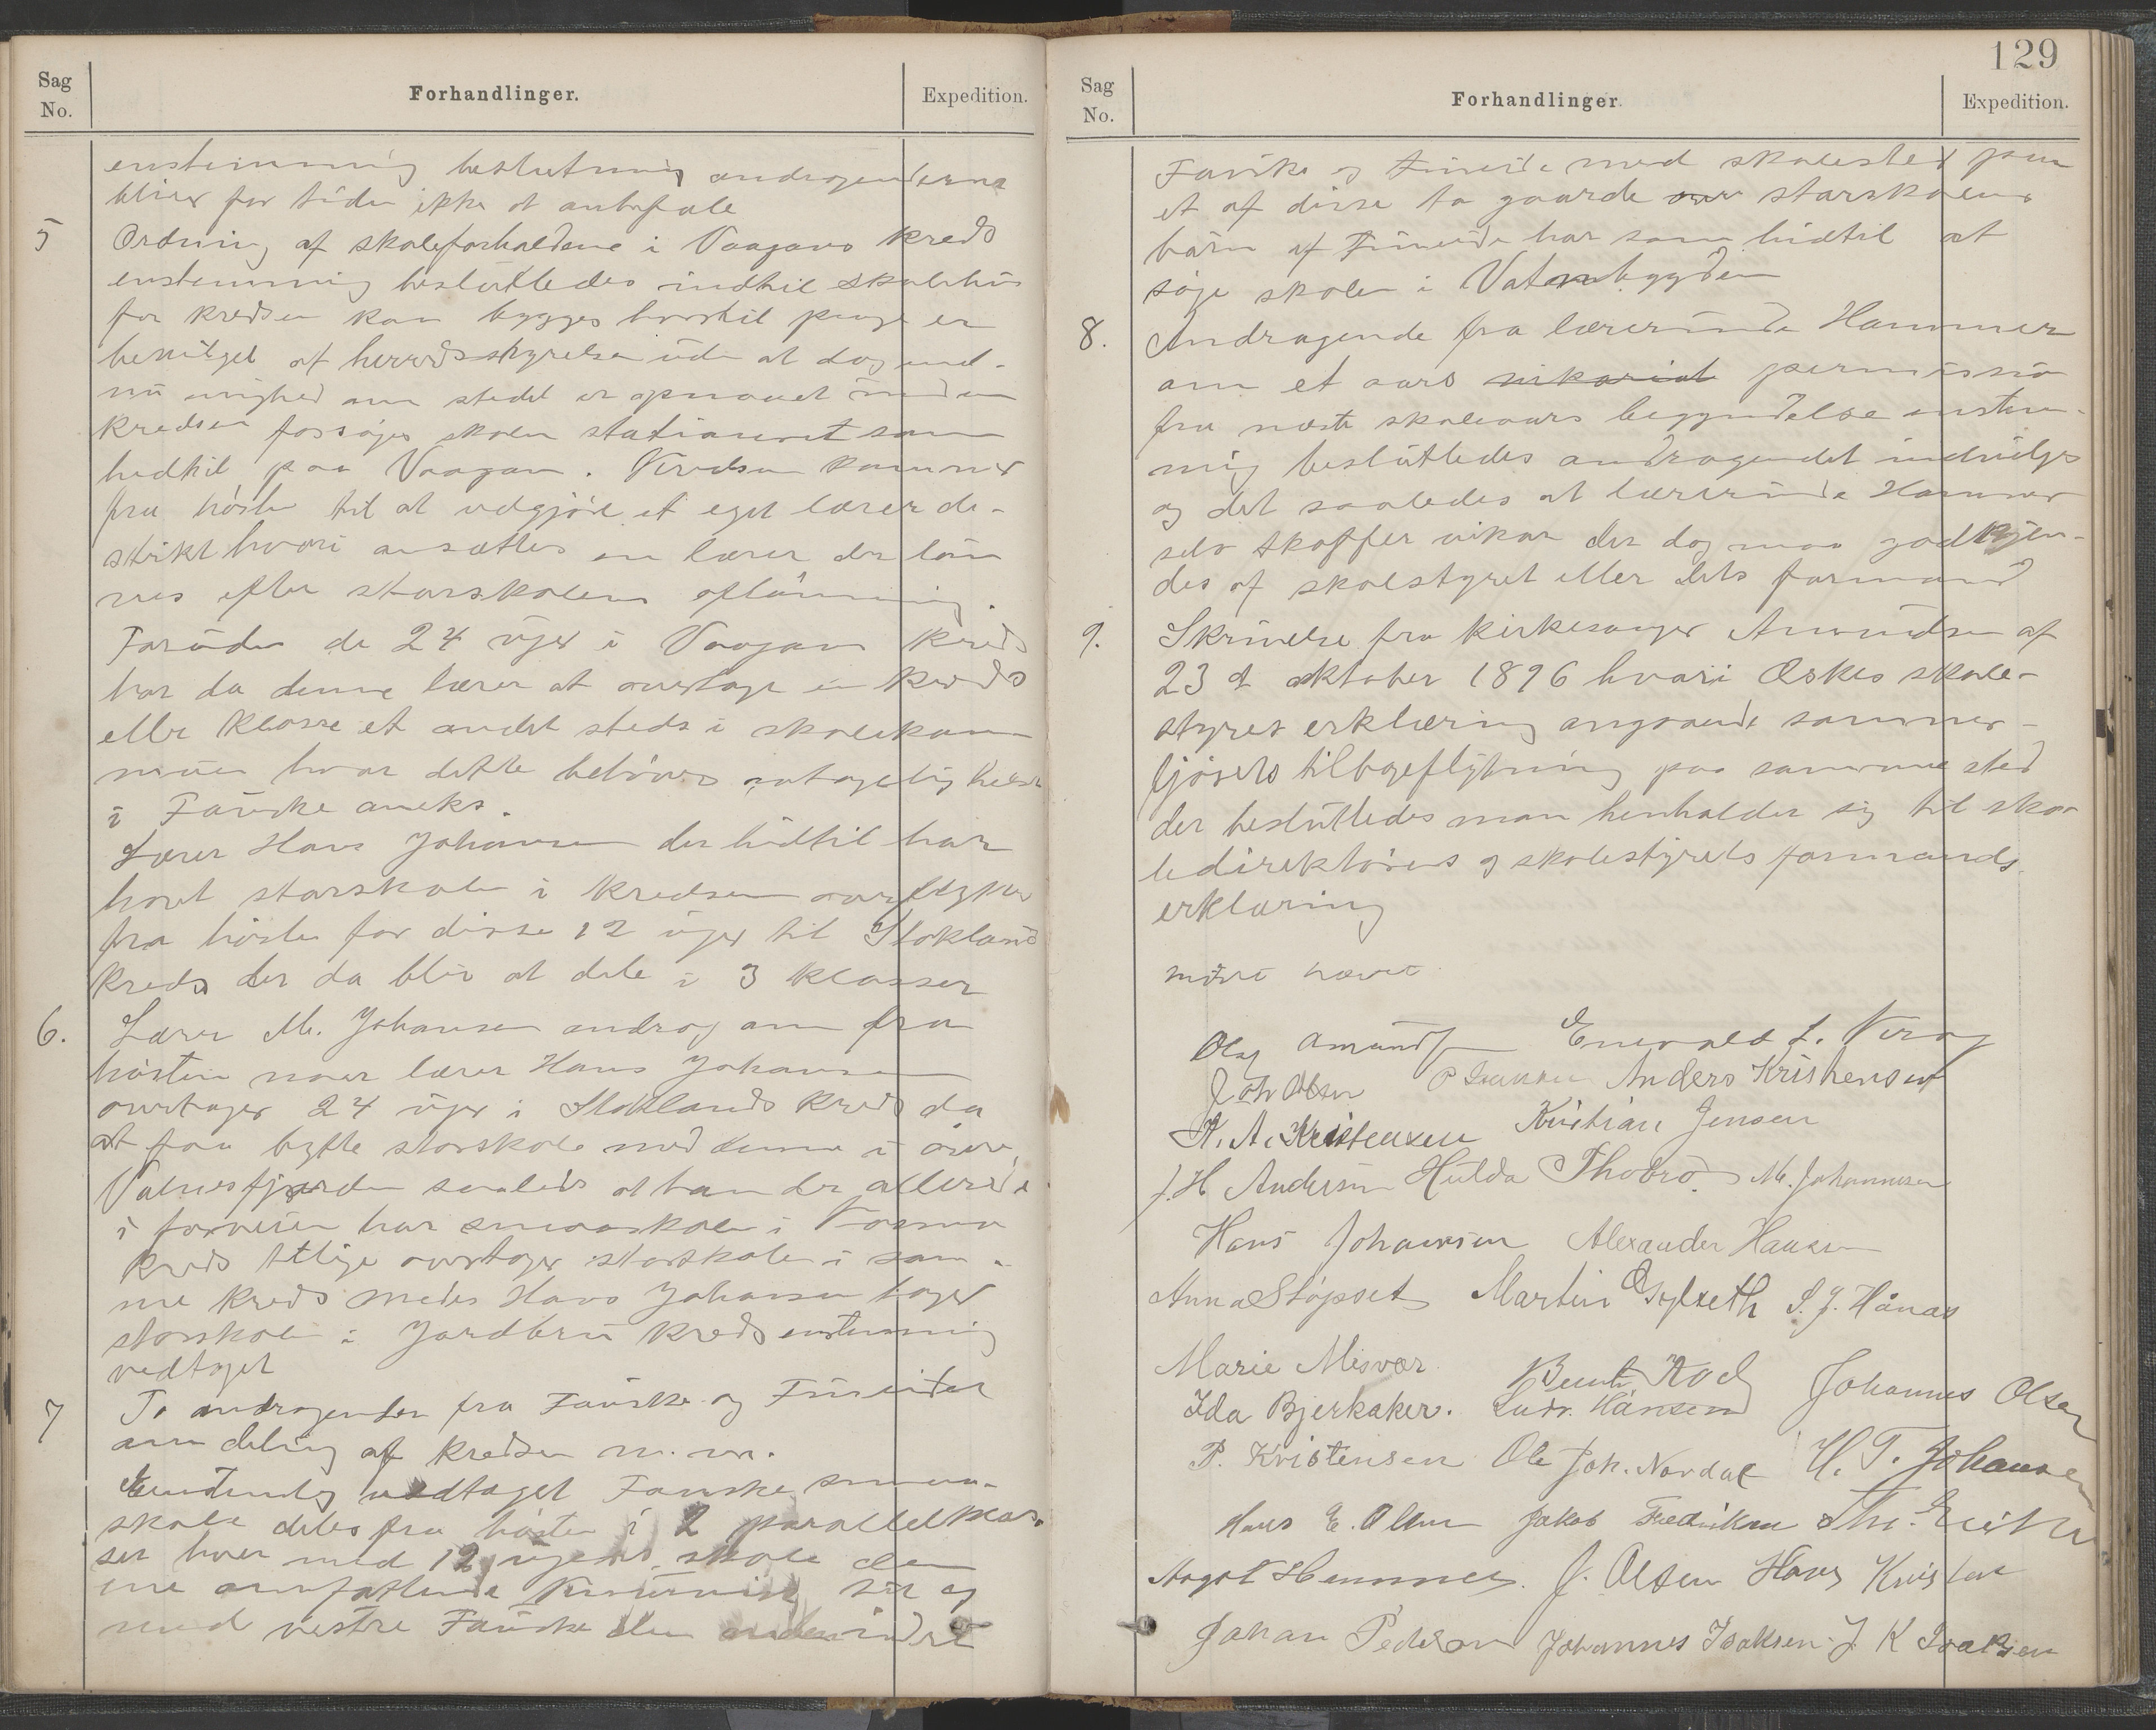 Sag
No.
Forhandlinger.
Expedition.
enstemmig beslutning andragenderne
bliver for tiden ikke at anbefale
5 Ordning af skoleforholdene i Vaagans kreds
enstemmig beslüttedes indtil skolehüs
for kredsen kan bygges hvortil penge er
bevilget af herredsstyrelsen üden at dog end-
nü enighed om stedet er opnaaet inden
kredsen forsøges skolen stationeret som
hidtil paa Vaagan. Kredsen kommer
fra hösten til at udgjöre et eget lærer di-
strikt hvori ansættes en lærer der lön
nes efter storskolens aflönning.
Foruden de 24 üger i Vaagans kreds
har da denne lærer at overtage en kreds
eller klasse et andet steds i skolekom
münen hvor dette behöves antagelig helst
i Faüske aneks.
Lærer Hans Johansen der hidtil har
havt storskolen i kredsen overflyttes
fra hösten for disse 12 üger til Stokland
kreds der da blir at dele i 3 klasser
6. Lærer M. Johansen androg om fra
hösten naar lærer Hans Johansen
overtager 24 üger i Stoklands kreds da
at faa bytte storskole med denne i övre
Valnesfjorden saaledes at han der allerede
i forveien har smaaskolen i
kreds tillige overtager storskolen i sam-
me kreds medens Hans Johansen tager
storskolen i Jordbrü kreds enstemmig
vedtaget
7 To andragender fra Faüske og Fineidet
om deling af kredsen m. m.
Enstemmig vedtaget Fauske smaa-
skole deles fra hösten i 2 parallelklas-
ser hver med 12 ügers skole den
ene omfattende sit og
med vestre Faüske den anden indre
129
Sag
No.
Forhandlinger.
Expedition.
Faüske og Fineide med skolested paa
et af disse to gaarde storskolens
börn af Fineide har som hidtil at
söge skolen i Vatenbygden
8. Andragende fra lærerinde Hammer
om et aars vikariat permission
fra næste skoleaars begyndelse enstem-
mig beslüttedes andragendet indvilges
og det saaledes at lærerinde Hammer
selv skaffer vikar der dog maa godkjen-
des af skolestyret eller dets formand
9. Skrivelse fra kirkesanger Amundsen af
23 d oktober 1896 hvori Öskes skole-
styrets erklæring angaaende sommer-
fjösets tilbageflytning paa samme sted
der beslüttedes man henholder sig til sko-
ledirektörens og skolestyrets formands
erklæring
mödet hævet
Olaf Amundsen Enevald L. Verag
Joh Olsen P Anders Kristensen
K. A. Kristensen Kristian Jensen
J. H Andersen Hulda Thobro. M. Johannesen
Hans Johansen Alexander Hansen
Anna Stöpset Martin Gylseth S. J. Hånas
Marie Misvær. Bernt Koch Johannes Olsen
Ida Bjerkaker. Ludv. Hansen
P. Kristensen Ole Joh. Nordal H. T. Johansen
Hans E. Olsen Jakob Fredriksen
Aagot Hammer. J. Olsen Hans Kristian
Johan Pederson Johannes Isaksen J. K Isaksen